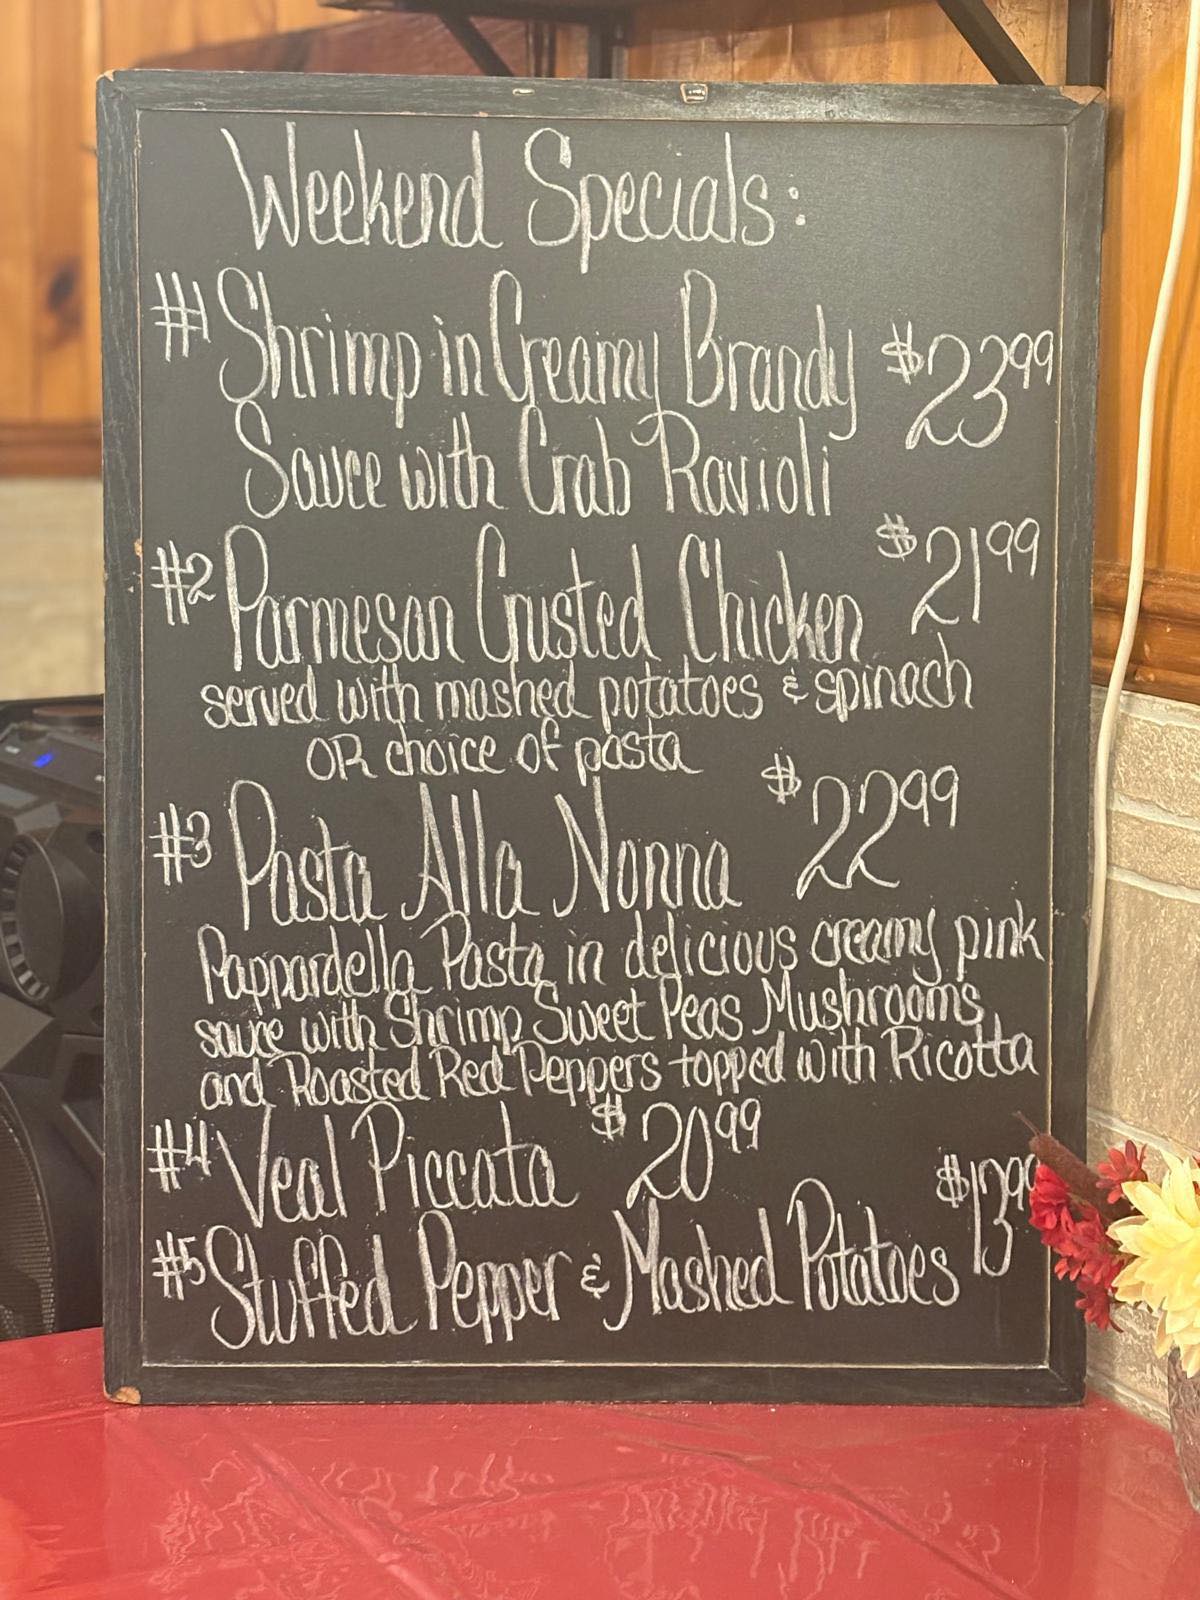 Weekend Specials:
#1 Shrimp in Creamy Brandy $23.99
Sauce with Crab Ravioli
#2 Parmesan Crusted Chicken $21.99
served with mashed potatoes & spinach
OR choice of pasta
#3 Pasta Alla Nonna $22.99
Pappardella Pasta in delicious creamy pink
sauce with Shrimp Sweet Peas Mushrooms
and Roasted Red Peppers topped with Ricotta
#4 Veal Piccata $20.99
#5 Stuffed Pepper & Mashed Potatoes $13.99